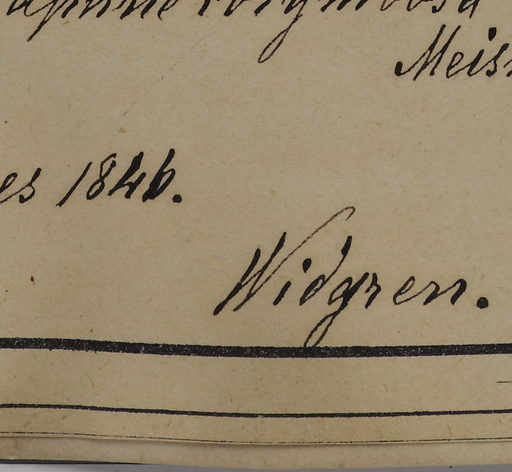 corymbosa
Meis
es 1846.
Widgren.